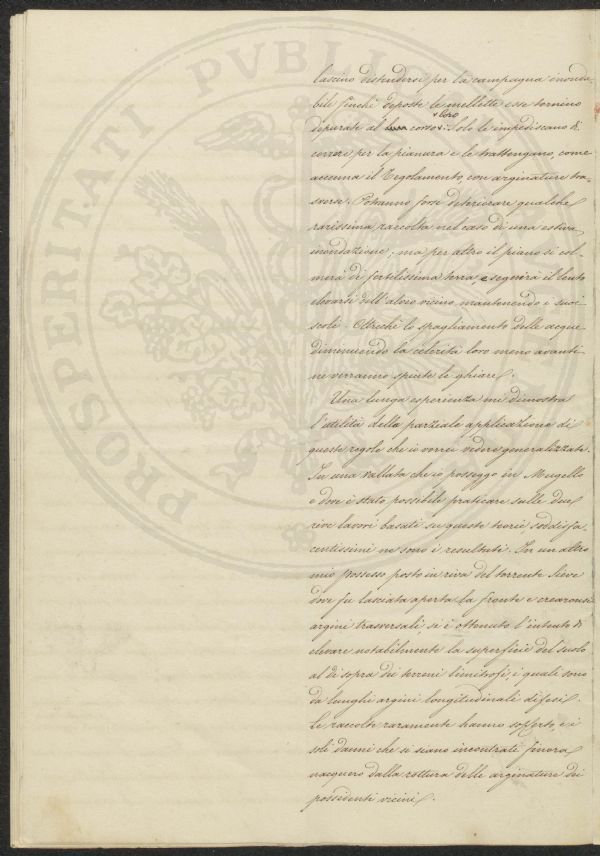 PROSPERITATI PVBLICAE
lascino distendersi per la campagna inonda-
bile finchè deposte le mellette esse tornino
depurate al loro corso: Solo le impediscano di
correre per la pianura e le trattengano, come
accenna il Regolamento, con arginature tra-
sverse. Potranno forse deteriorare qualche
rarissima raccolta nel caso di una estiva
inondazione; ma per altro il piano si col-
merà di fertilissima terra, e seguirà il lento
elevarsi dell'alveo vicino mantenendo i suoi
scoli. Oltrechè lo spagliamento delle acque
diminuendo la celerità loro meno avanti
ne verranno spinte le ghiare.
Una lunga esperienza mi dimostra
l'utilità della parziale applicazione di
queste regole che io vorrei vedere generalizzate.
In una vallata che io posseggo in Mugello
e dove è stato possibile praticare sulle due
rive lavori basati su queste teorie, soddisfa-
centissimi ne sono i resultati. In un altro
mio possesso posto in riva del torrente Sieve
dove fu lasciata aperta la fronte e crearonsi
argini trasversali, si è ottenuto l'intento di
elevare notabilmente la superficie del suolo
al di sopra dei terreni limitrofi, i quali sono
da lunghi argini longitudinali difesi.
Le raccolte raramente hanno sofferto, e i
soli danni che si siano incontrati finora
nacquero dalla rottura delle arginature dei
possidenti vicini.